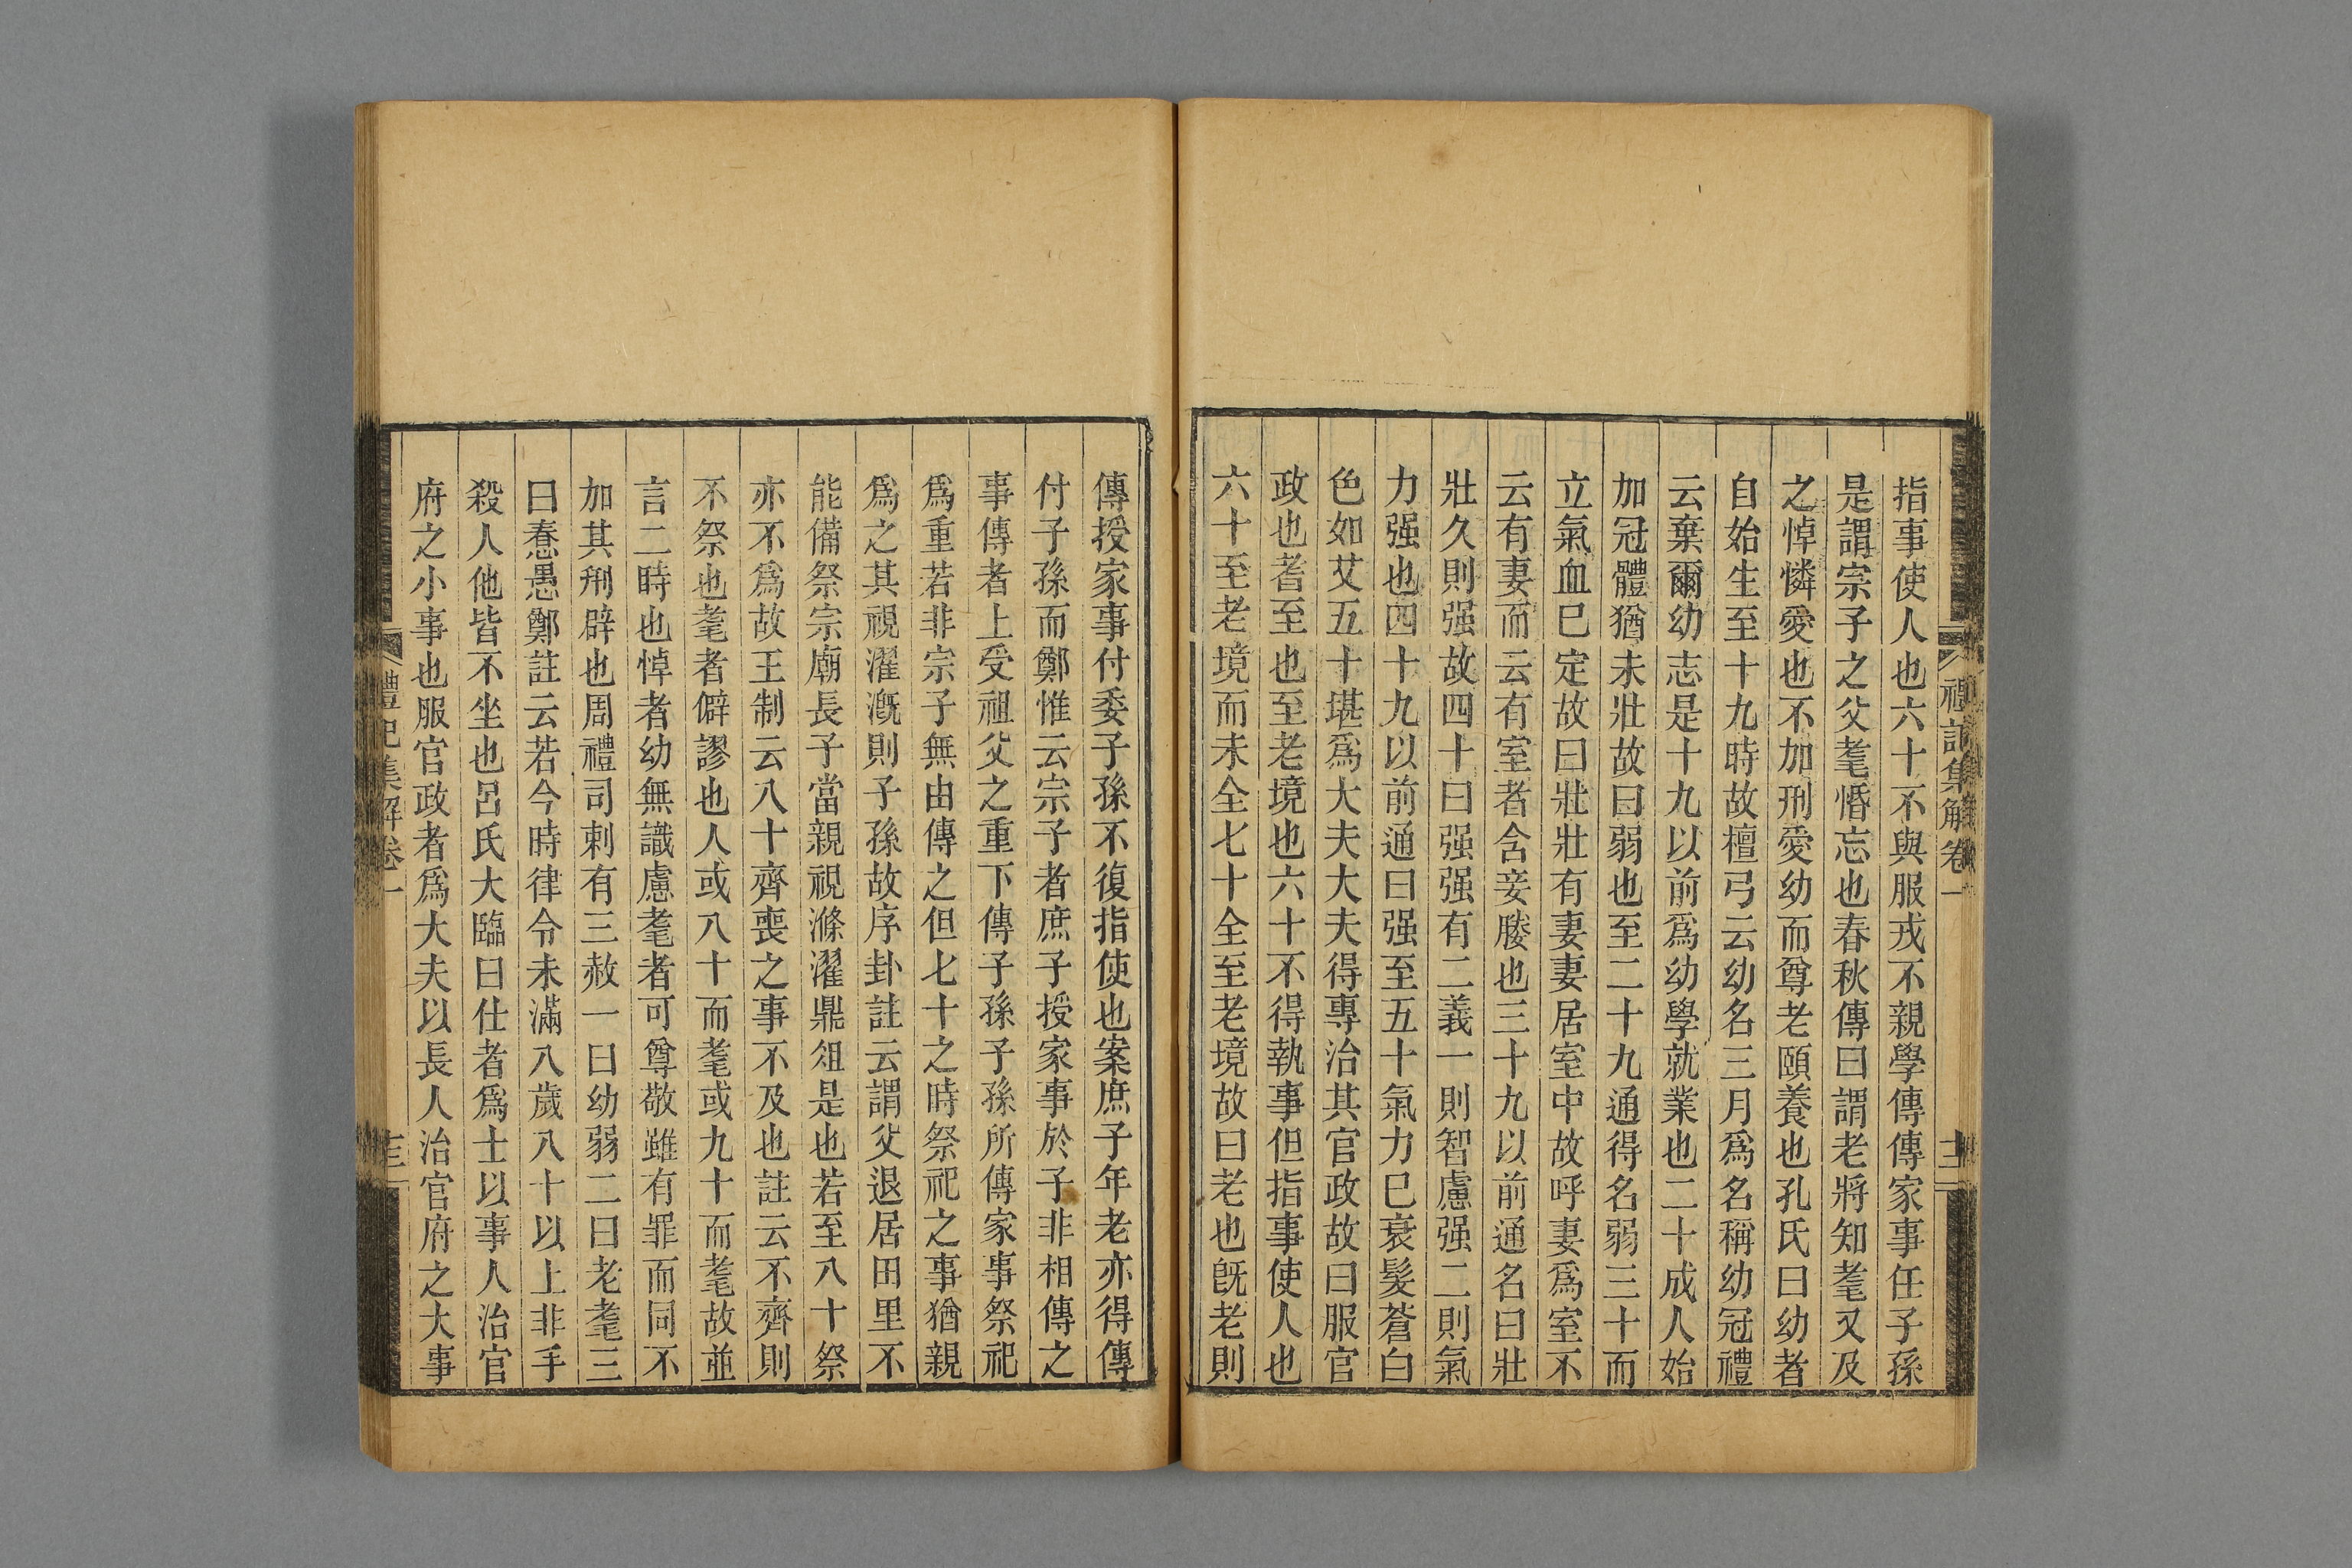 禮記集解卷一
十二
指事使人也六十不與服戎不親學傳傳家事任子孫
是謂宗子之父耄惛忘也春秋傳曰謂老將知耄又及
之悼憐愛也不加刑愛幼而尊老頤養也孔氏曰幼者
自始生至十九時故檀弓云幼名三月爲名稱幼冠禮
云棄爾幼志是十九以前爲幼學就業也二十成人始
加冠體猶未壯故曰弱也至二十九通得名弱三十而
立氣血巳定故曰壯壯有妻妻居室中故呼妻爲室不
云有妻而云有室者含妾媵也三十九以前通名曰壯
壯久則强故四十曰强强有二義一則智慮强二則氣
力强也四十九以前通曰强至五十氣力巳衰髮蒼白
色如艾五十堪爲大夫大夫得專治其官政故曰服官
政也耆至也至老境也六十不得執事但指事使人也
六十至老境而未全七十全至老境故曰老也旣老則
傳授家事付委子孫不復指使也案庶子年老亦得傳
付子孫而鄭惟云宗子者庶子授家事於子非相傳之
事傳者上受祖父之重下傳子孫子孫所傳家事祭祀
爲重若非宗子無由傳之但七十之時祭祀之事猶親
爲之其視濯漑則子孫故序卦註云謂父退居田里不
能備祭宗廟長子當親視滌濯鼎俎是也若至八十祭
亦不爲故王制云八十齊喪之事不及也註云不齊則
不祭也耄者僻謬也人或八十而耄或九十而耄故並
言二時也悼者幼無識慮耄者可尊敬雖有罪而同不
加其刑辟也周禮司刺有三赦一曰幼弱二曰老耄三
曰惷愚鄭註云若今時律令未滿八歲八十以上非手
殺人他皆不坐也呂氏大臨曰仕者爲士以事人治官
府之小事也服官政者爲大夫以長人治官府之大事
禮記集解卷一
十三